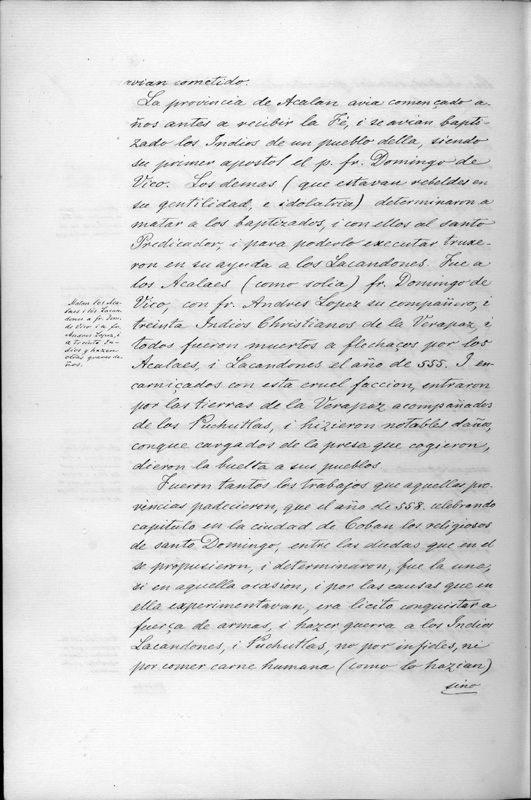 avian cometido.
La provincia de Acalan avia començado a-
ños antes a recibir la Fé, i se avian bapti-
zado los Indios de un pueblo della, siendo
su primer apostol el p. fr. Domingo de
Vico. Los demas (que estavan rebeldes en
su gentilidad, e idolatria) determinaron a
matar a los baptizados, i con ellos al santo
Predicador, i para poderlo executar truxe-
ron en su ayuda a los Lacandones. Fue a
los Acalaes (como solia) fr. Domingo de
Vico, con fr. Andres Lopez su compañero, i
treinta Indios Christianos de la Verapaz, i
todos fueron muertos a flechaços por los
Acalaes, i Lacandones el año de 555. I en-
carniçados con esta cruel faccion, entraron
por las tierras de la Verapaz acompañados
de los Puchutlas, i hizieron notables daños,
conque cargados de la presa que cogieron,
dieron la buelta a sus pueblos.
Matan los Aca-
laes i los Lacan-
dones a fr. Domi.
de Vico i a fr.
Andres Lopez, i
a treinta In-
dios y hazen
otros graves da-
ños.
Fueron tantos los trabajos que aquellas pro-
vincias padecieron, que el año de 558. celebrando
capitulo en la ciudad de Coban los religiosos
de santo Domingo, entre las dudas que en el
se propusieron, i determinaron, fue la una,
si en aquella ocasion, i por las causas que en
ella experimentavan, era licito conquistar a
fuerça de armas, i hazer guerra a los Indios
Lacandones, i Puchutlas, no por infieles, ni
por comer carne humana (como lo hazian)
sino